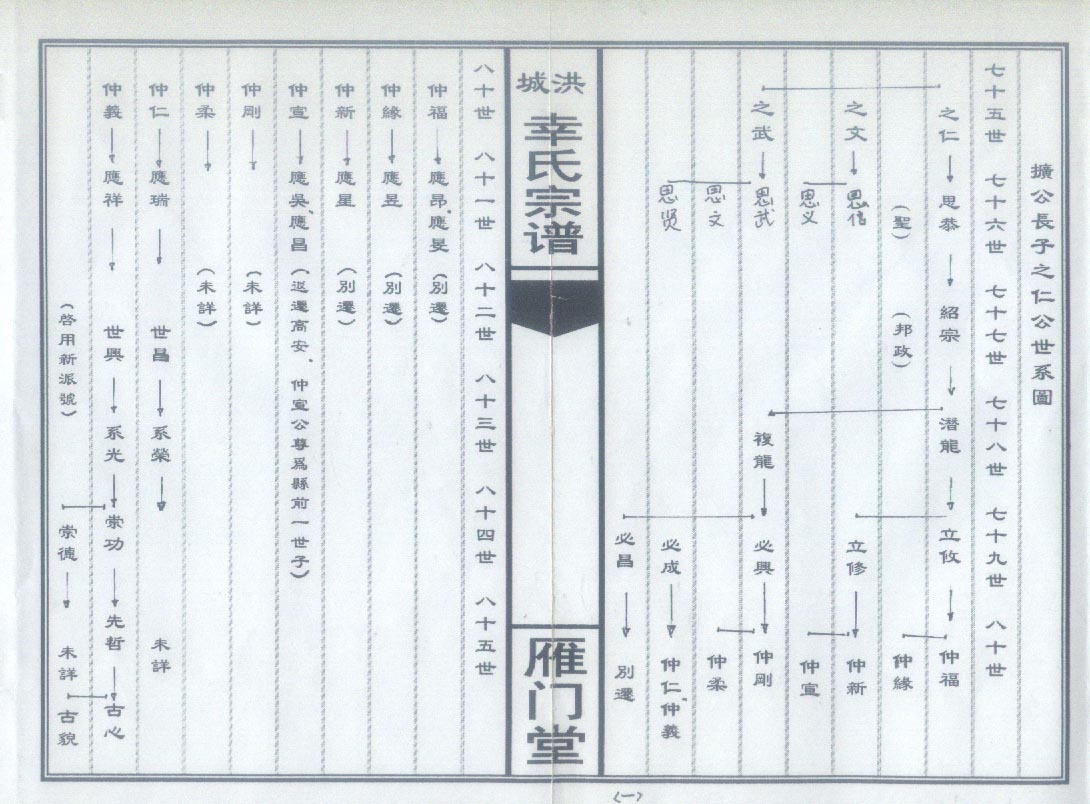 擴公長子之仁公世系圖
七十五世 七十六世 七十七世 七十八世 七十九世 八十世
之仁 思恭 紹宗 潛龍 立攸 仲福
(聖) (邦政) 仲緣
之文 思信 立修 仲新
思义 仲宣
之武 思武 複龍 必興 仲剛
思文 仲柔
思贤 必成 仲仁、仲義
必昌 別遷
洪城
幸氏宗谱
雁门堂
(一)
八十世 八十一世 八十二世 八十三世 八十四世 八十五世
仲福 應昂、應旻 (別遷)
仲緣 應昱 (別遷)
仲新 應星 (別遷)
仲宣 應吳、應昌 (返遷高安、仲宣公尊為縣前一世子)
仲剛 (未詳)
仲柔 (未詳)
仲仁 應瑞 世昌 系榮 未詳
仲義 應祥 世興 系光 崇功 先哲 古心
(啓用新派號) 崇德 未詳 古貌